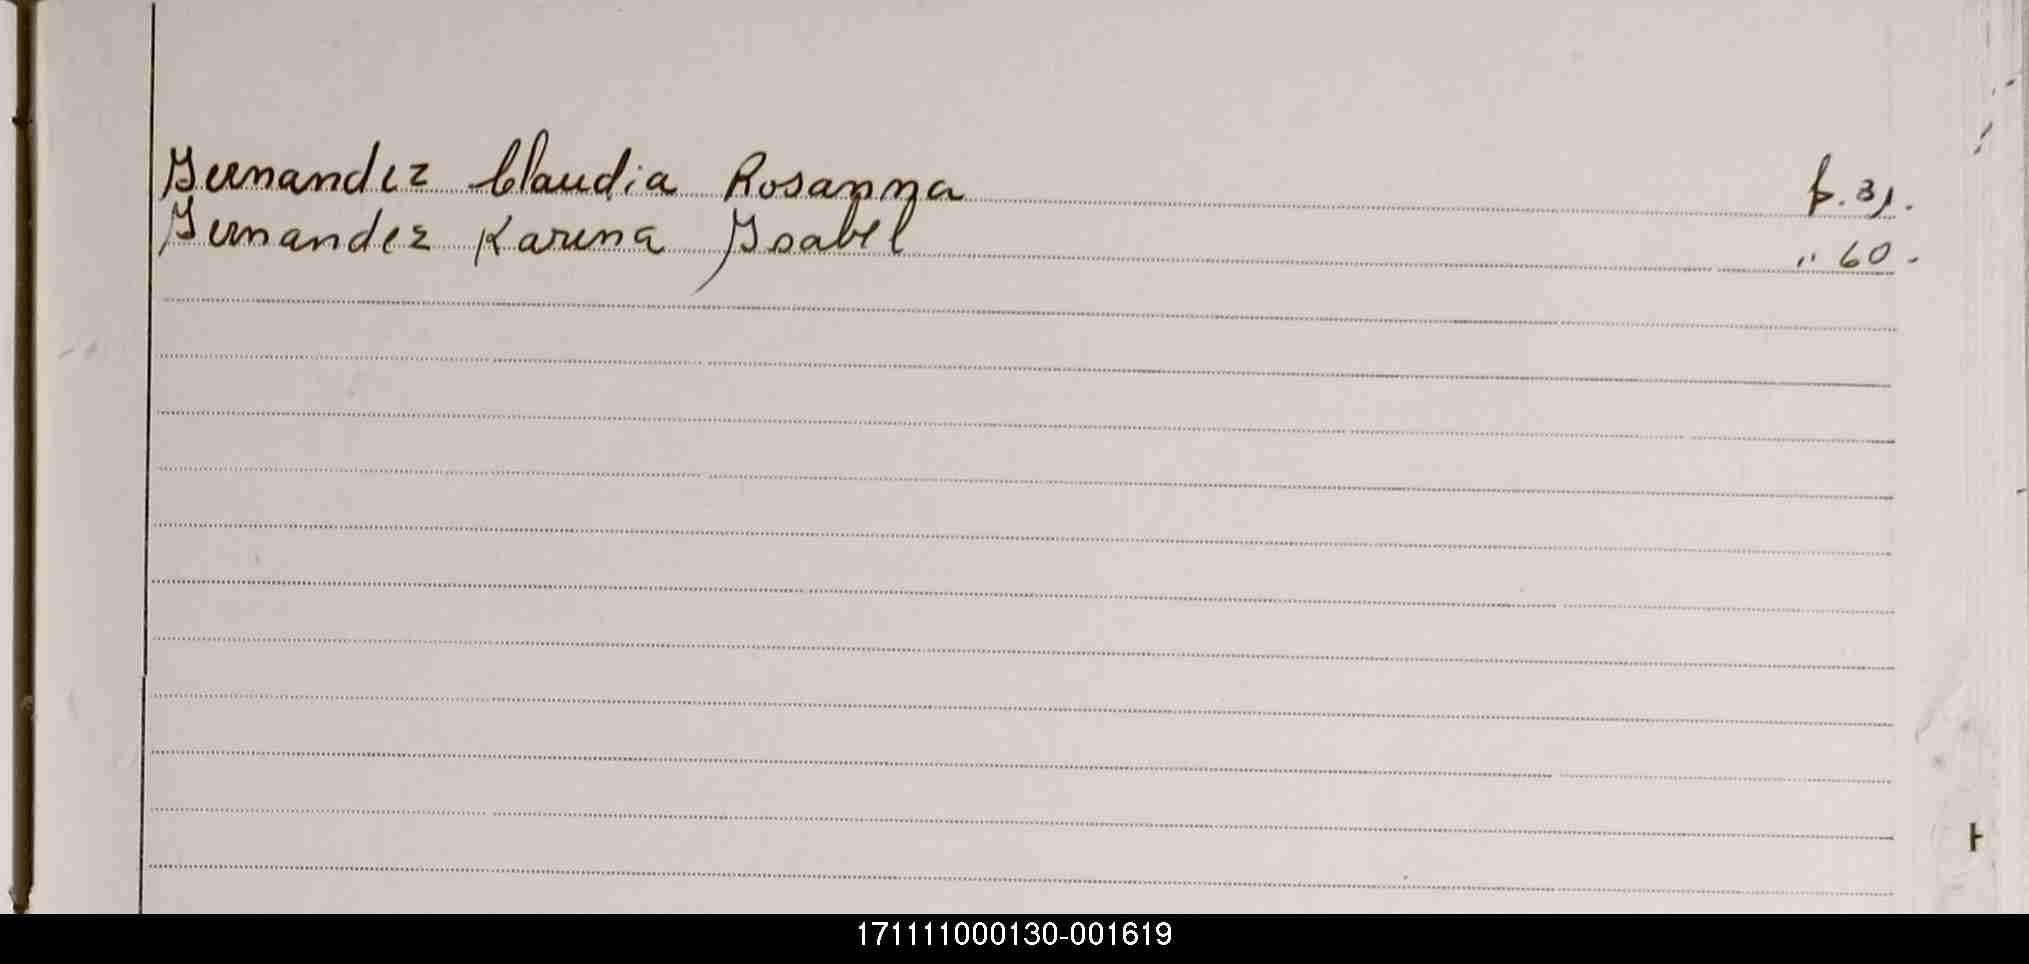 Hernandez Claudia Rosanna f. 31.
Hernandez Karena Ysabel " 60.
H
171111000130-001619